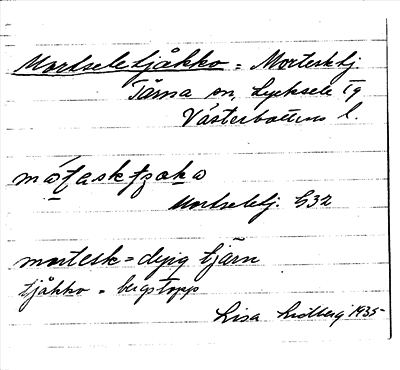 Mortseletjåkko = Mortesktj.
Tärna sn, Lycksele Tg
Västerbottens l.
mátasktzaka
Mortseletj. G32
mortesk = dyig tjärn
tjåkko = bergstopp
Lisa Lidberg 1935